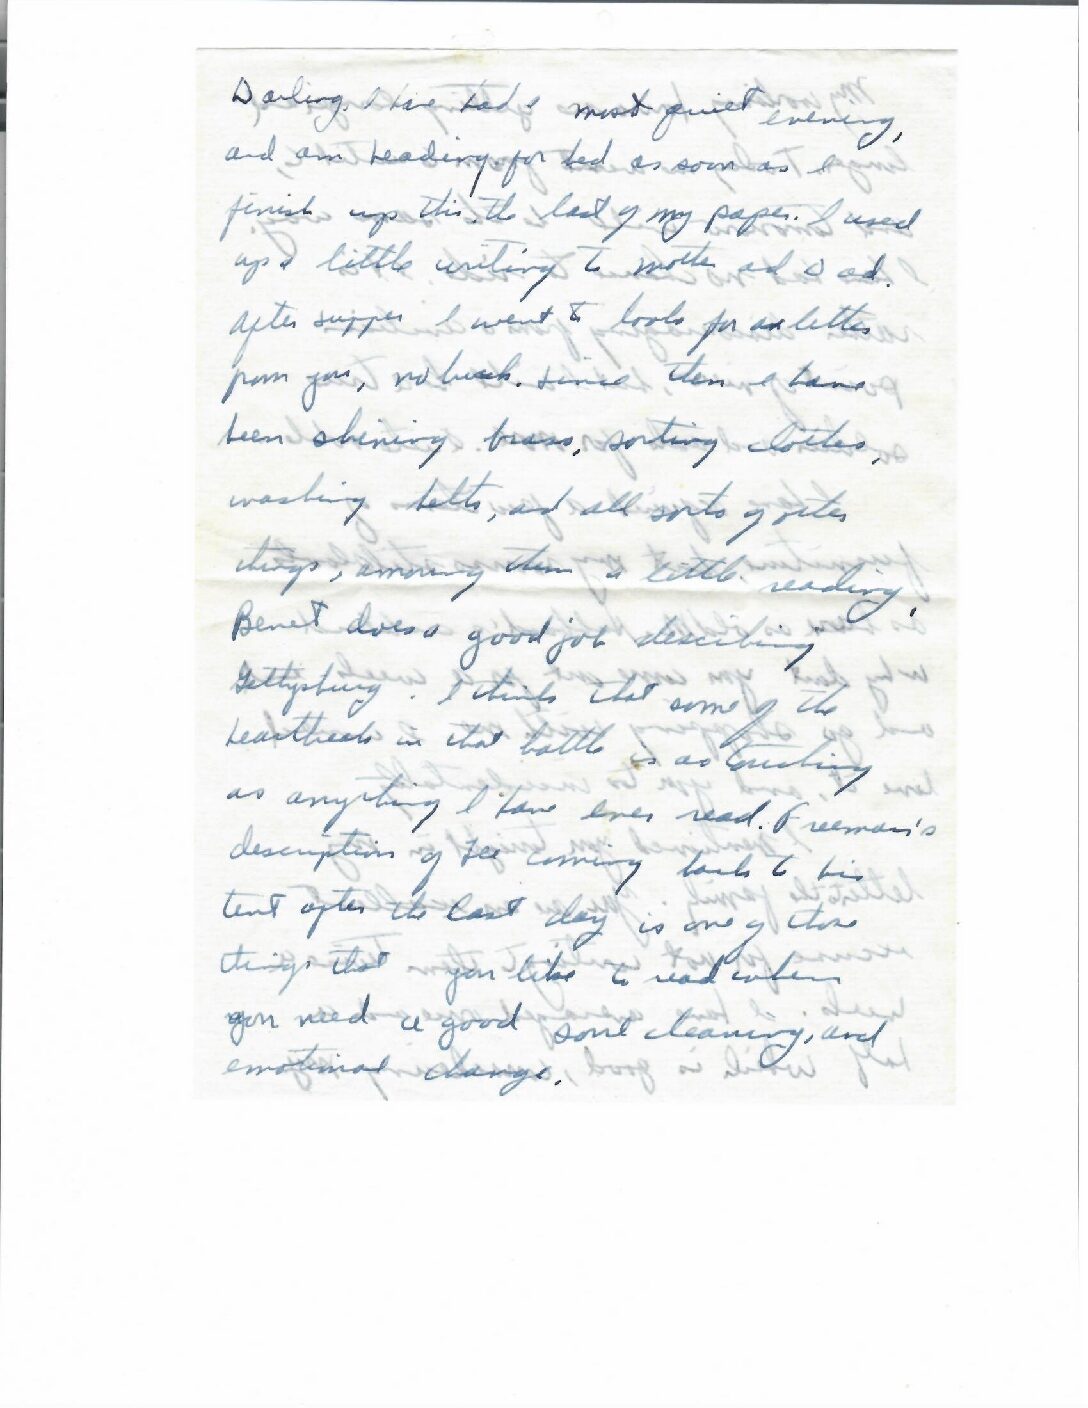 Darling. I have had a most quiet evening,
and am heading for bed as soon as I
finish up this, the last of my paper. I used
up a little writing to Mother and Dad.
After supper I went to look for a letter
from you, no luck. Since then I have
been shining brass, sorting clothes,
washing belts, and all sorts of other
things, among them a little reading.
Benet does a good job describing
Gettysburg. I think that some of the
heartbreak in that battle is as touching
as anything I have ever read. Freeman's
description of Lee coming back to his
tent after the last day is one of those
things that you like to read when
you need a good soul cleaning, and
emotional change.